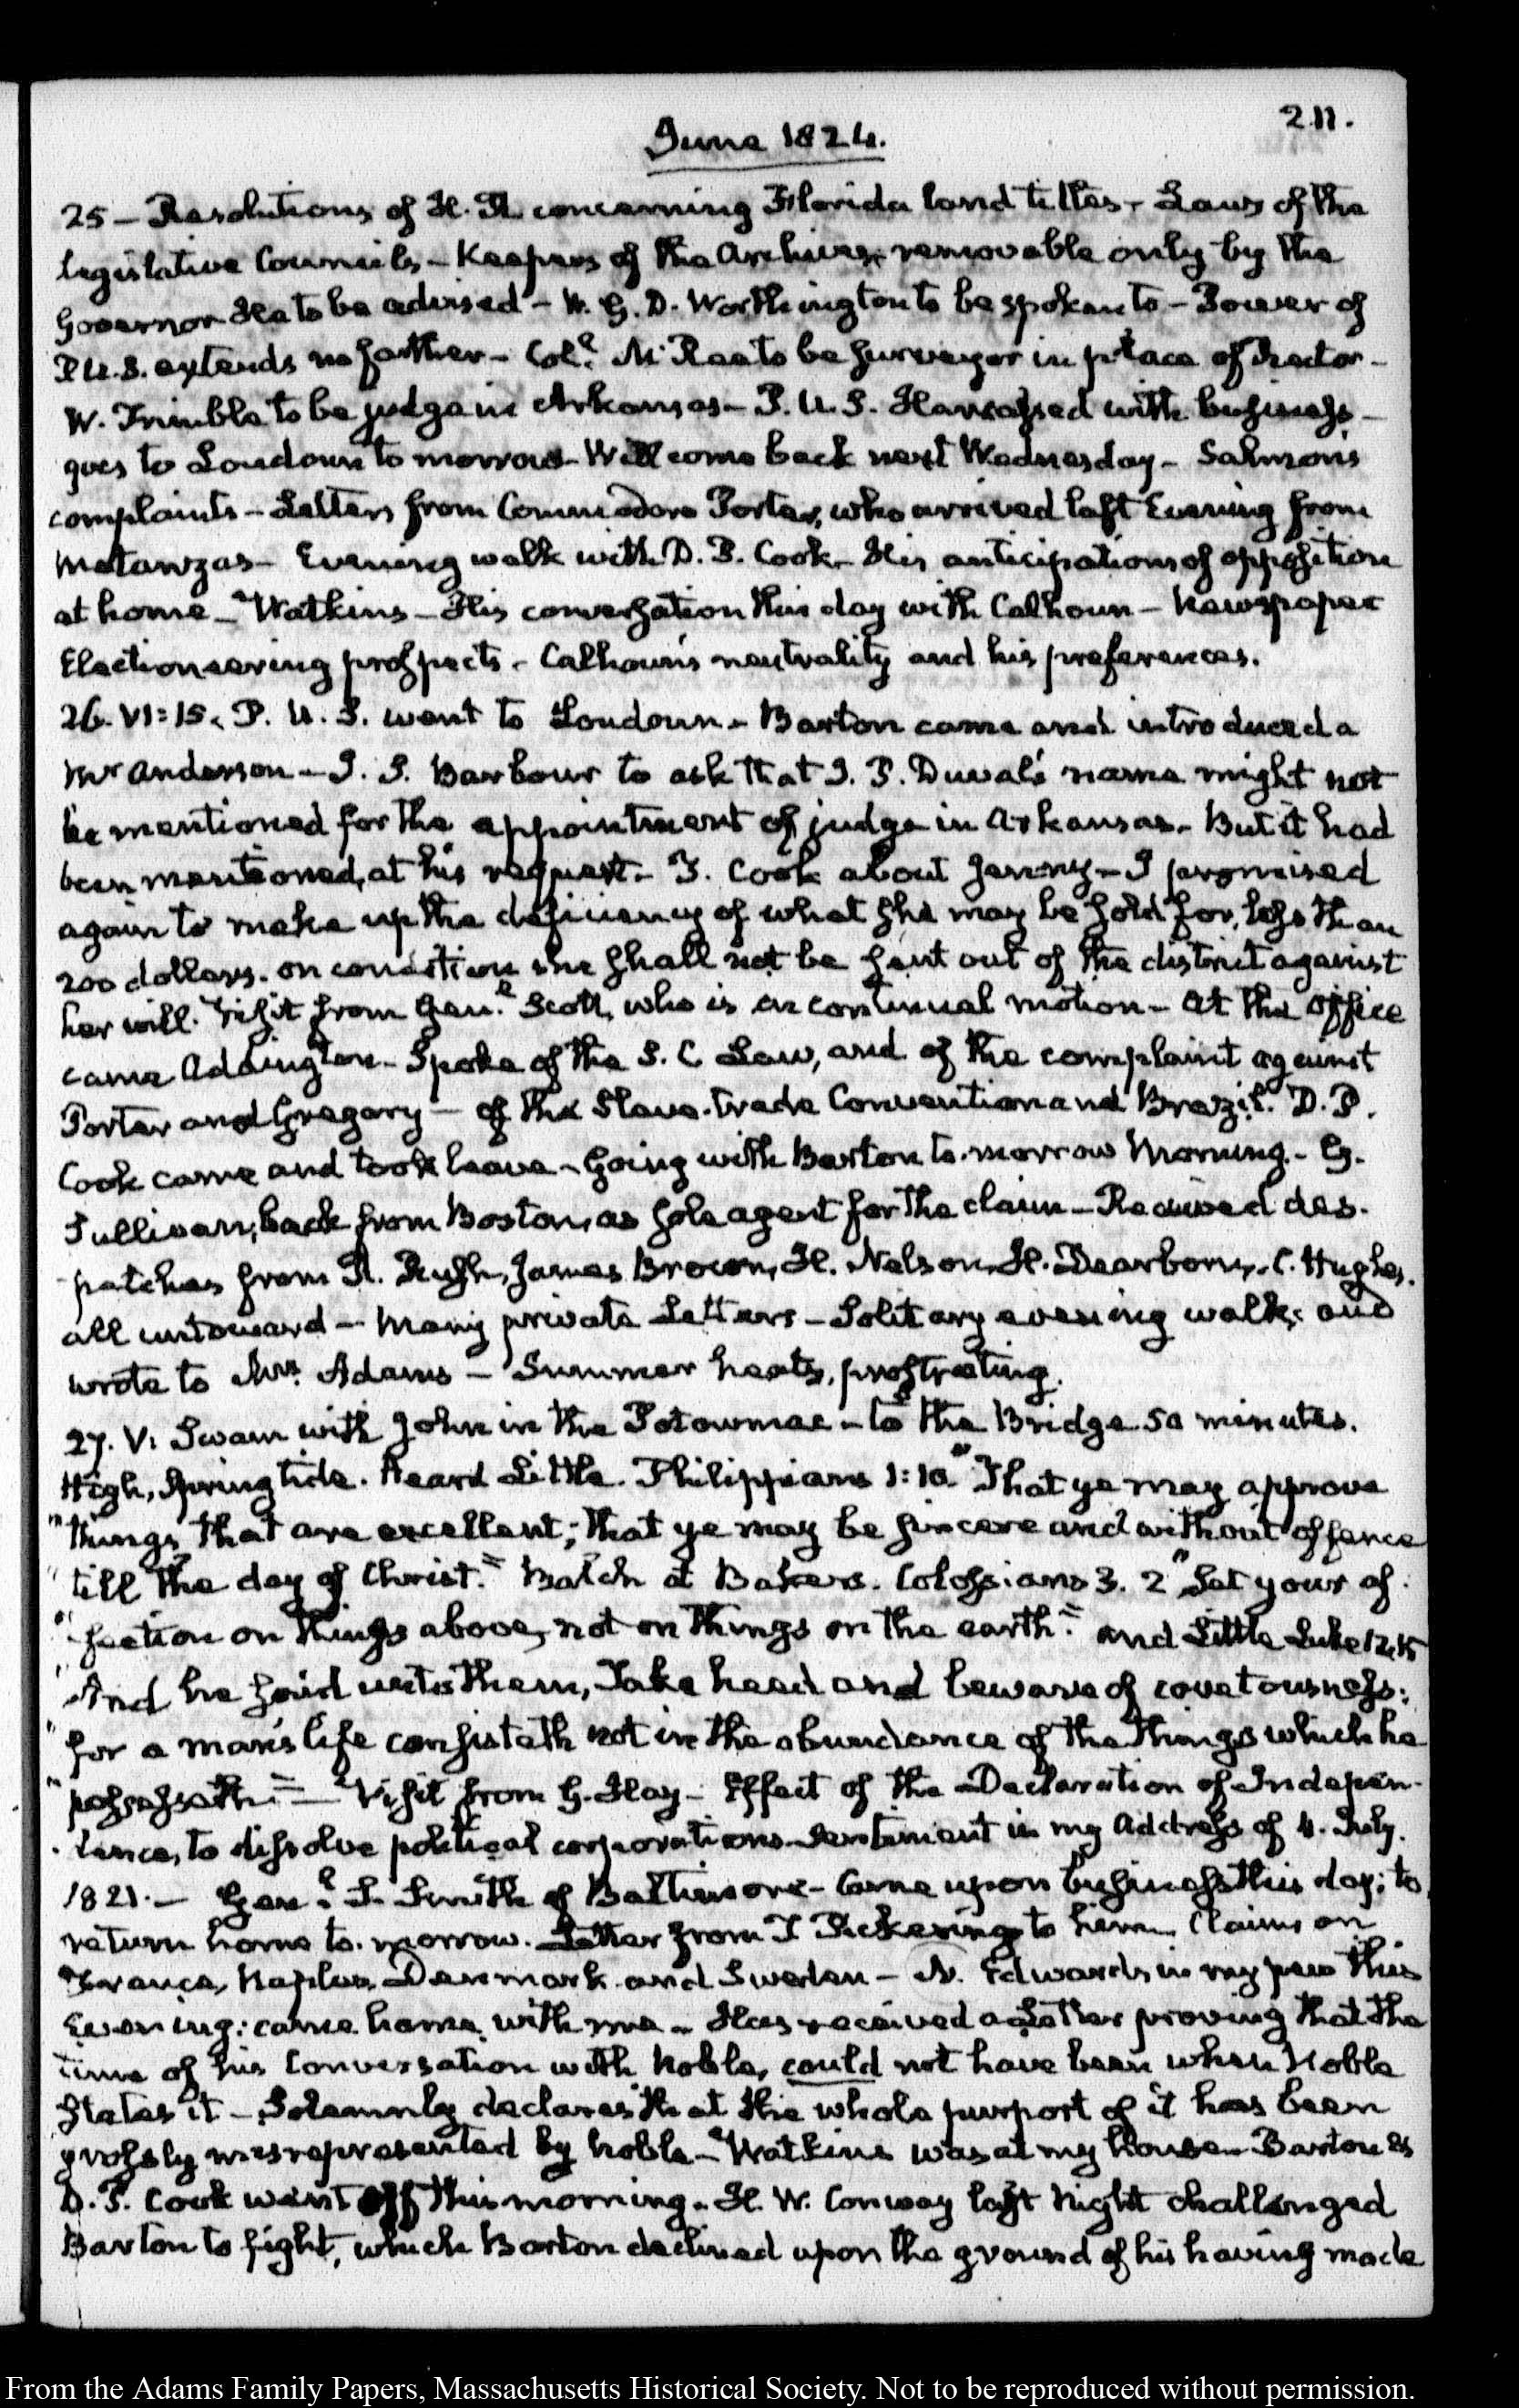 211.
June 1824.
25 – Resolutions of H. R. concerning Florida land titles – Laws of the
legislative Councils – Keepers of the Archives, removable only by the
Governor He to be advised – W. G. D. Worthington to be spoken to – Power of
P U. S. extends no farther – Col.l McRee to be surveyor in place of Rector –
W. Trimble to be judge in Arkansas – P. U. S. Harrassed with business –
goes to Loudoun to morrow – Will come back next Wednesday – Salmon's
complaints – Letters from Commodore Porter, who arrived last Evening from
Matanzas – Evening walk with D. P. Cook – His anticipations of opposition
at home – Watkins – His conversation this day with Calhoun – Newspaper
Electioneering prospects – Calhoun's neutrality and his preferences.
26. VI:15. P. U. S. went to Loudoun – Barton came and introduced a
Mr Anderson – J. S. Barbour to ask that J. P. Duval's name might not
be mentioned for the appointment of judge in Arkansas – But it had
been mentioned, at his request – F. Cook about Jenny – I promised
again to make up the deficiency of what she may be sold for, less than
200 dollars. on condition she shall not be sent out of the district against
her will. Visit from Gen.l Scott, who is in continual motion – At the Office
came Addington – Spoke of the S. C Law, and of the complaint against
Porter and Gregory – of the Slave-trade Convention and Brazil. D. P.
Cook came and took leave – Going with Barton to-morrow Morning – G.
Sullivan, back from Boston, as sole agent for the claim – Received des-
patches from R. Rush, James Brown, H. Nelson, H. Dearborn, C. Hughes,
all untoward – Many private Letters – Solitary evening walk; and
wrote to Mrs. Adams – Summer heats, prostrating.
27. V. Swam with John in the Potowmac – to the Bridge 50 minutes.
High, Spring tide. Heard Little. Philippians 1:10. "That ye may approve
"things that are excellent; that ye may be sincere and without offence
"till the day of Christ." Balch at Bakers. Colossians 3. 2 "Set your af-
"fection on things above, not on things on the earth." and Little Luke 12.15
"And he said unto them, Take heed and beware of covetousness:
"for a man's life consisteth not in the abundance of the things which he
"possesseth." – Visit from G. Hay – Effect of the Declaration of Indepen-
dence, to dissolve political corporations – Sentiment in my Address of 4. July.
1821. – Gen.l S. Smith of Baltimore – Came upon business this day; to
return home to-morrow. Letter from T Pickering to him. Claims on
France, Naples, Denmark and Sweden – N. Edwards in my pew this
Evening: came home with me – Has received a Letter proving that the
time of his Conversation with Noble, could not have been when Noble
States it – Solemnly declares that the whole purport of it has been
grossly misrepresented by Noble – Watkins was at my house – Barton &
D. P. Cook went off this morning – H. W. Conway last Night challenged
Barton to fight, which Barton declined upon the ground of his having made
From the Adams Family Papers, Massachusetts Historical Society. Not to be reproduced without permission.